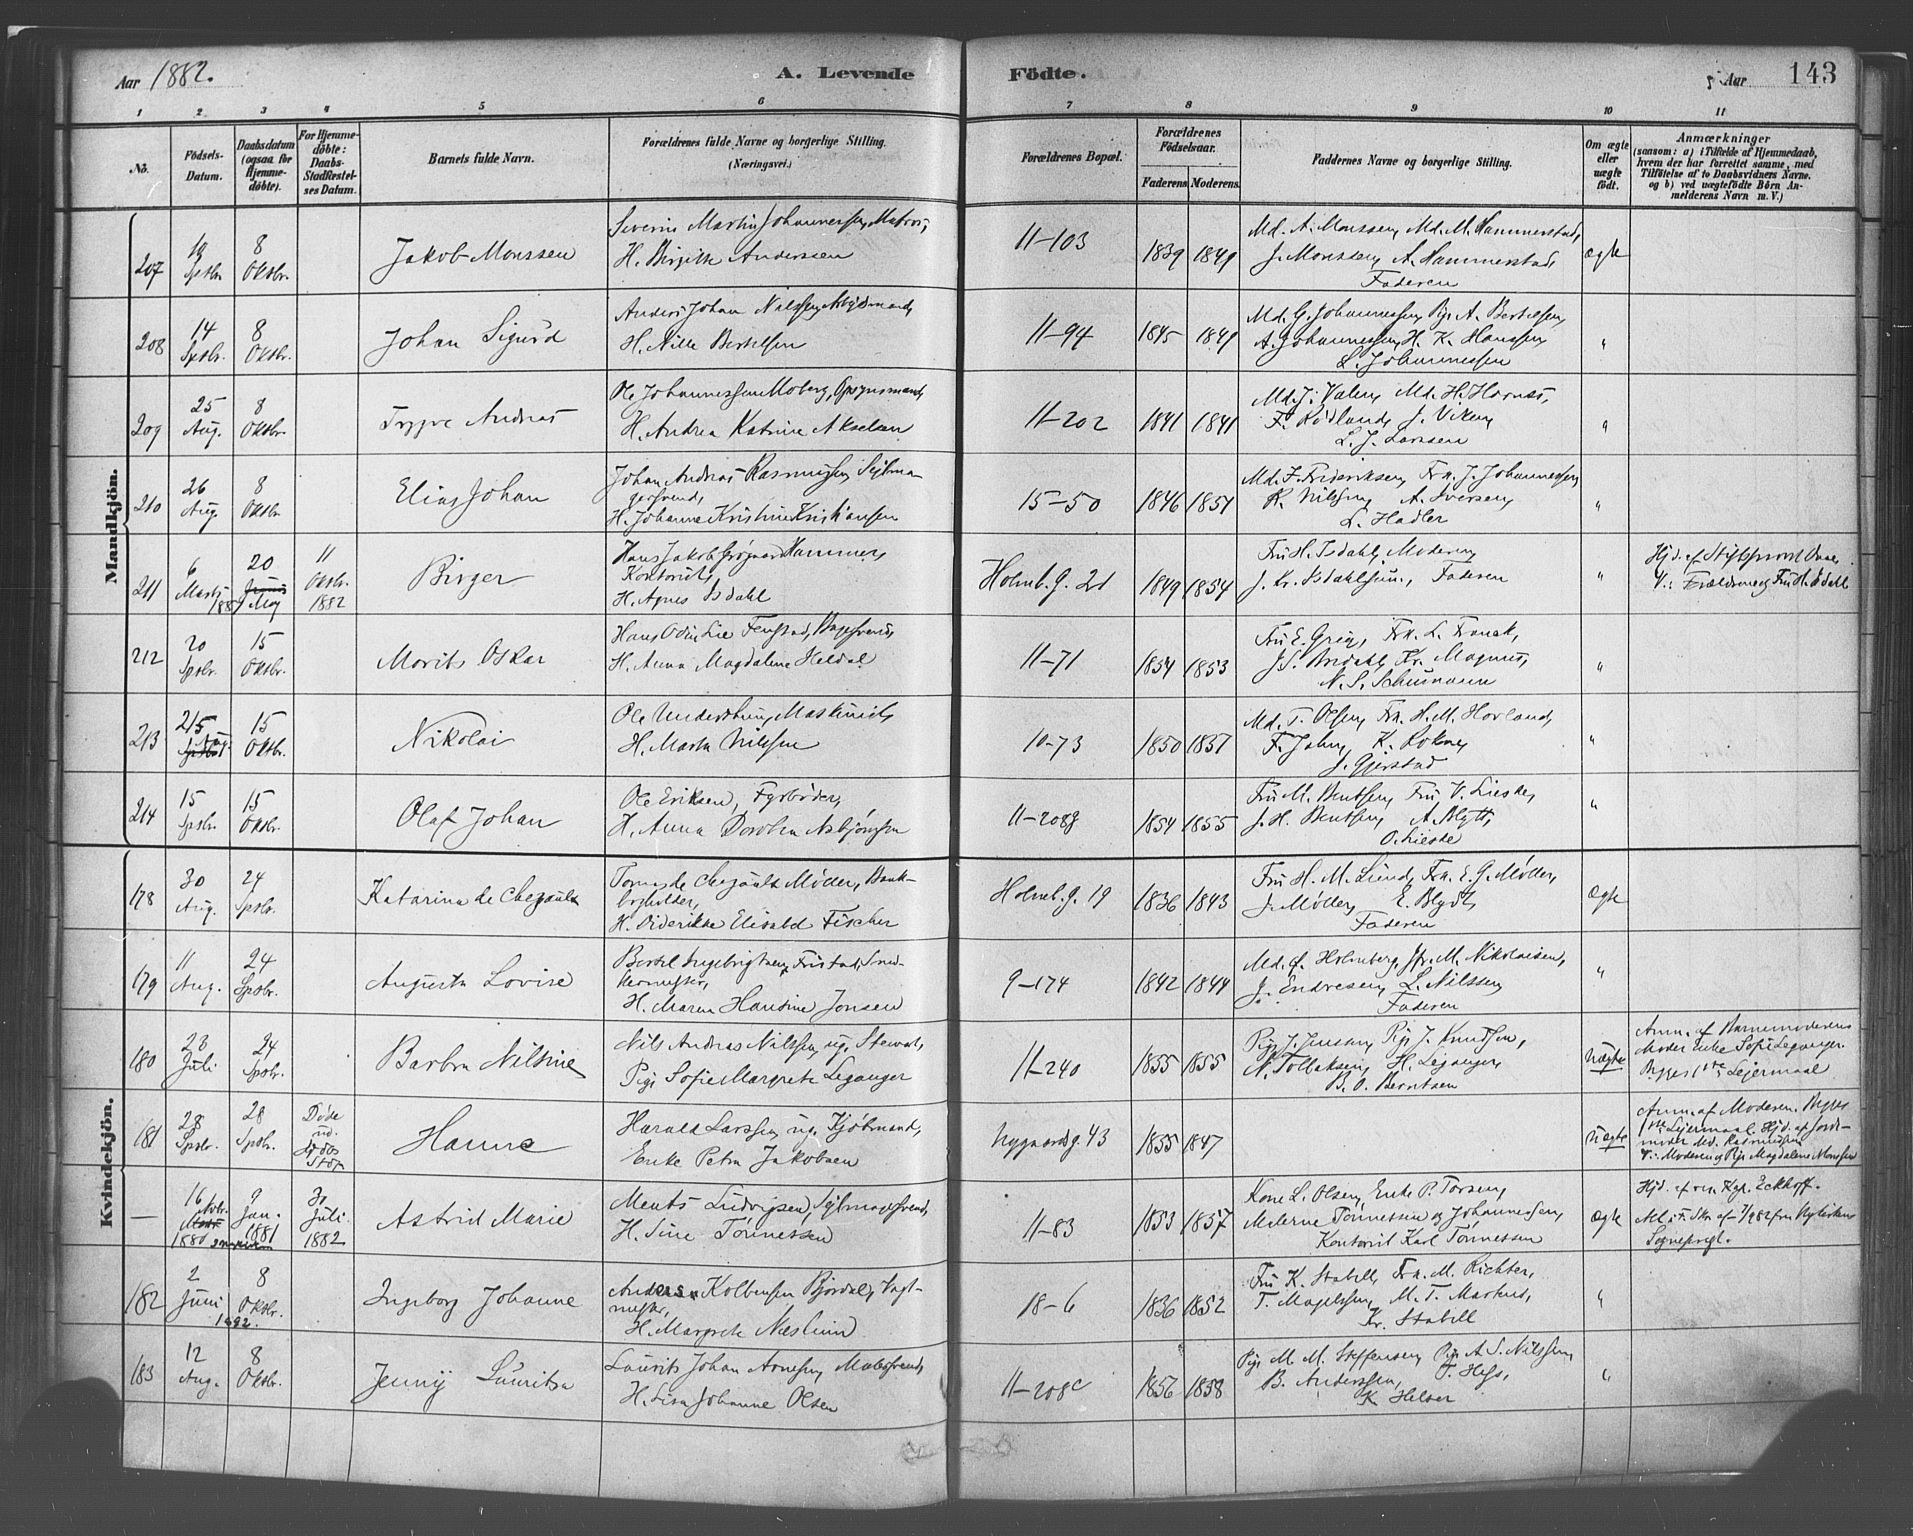 Aar 1882.
A. Levende
Fødte.
Aar
143
1 2 3 4 5 6 7 8 9 10 11
No.
Fødsels-Datum.
Daabsdatum (ogsaa for Hjemmedøbte).
For Hjemmedøbte: Daabs-Stadfæstelses Datum.
Barnets fulde Navn.
Forældrenes fulde Navne og borgerlige Stilling. (Næringsvei.)
Forældrenes Bopæl.
Forældrenes Fødselsaar.
Faderens Moderens
Faddernes Navne og borgerlige Stilling.
Om ægte eller uægte født.
Anmærkninger
(saasom: a) i Tilfælde af Hjemmedaab,
hvem der har forrettet samme, med
Tilføielse af to Daabsvidners Navne.
og b) ved uægtefødte Børn An-
melderens Navn m. V.)
Mandkjøn.
207
8 Oktbr.
Jakob Monssen
Severin Martin Johannessen, Matros,
H. Birgitte Anderssen
11-103
1839 1849
Md. A. Monssen, Md. M. Hammerstad,
J. Monssen, A. Hammerstad,
Faderen
ægte
208
14 Spbr.
8 Oktbr.
Johan Sigurd
Anders Johan Nilssen, Arbeidsmand,
H. Nille Bertelsen
11-94
1845 1849
Md. G. Johannessen, Pige A. Bertelsen,
A. Johannessen, H. K. Hanssen,
L. Johannessen
"
209
25 Aug.
8 Oktbr.
Trygve Andreas
Ole Johannessen Moberg, Opsynsmand,
H. Andrea Katrine Akselsen
11-202
1841 1841
Md. J. Valen, Md. H. Hornes,
F. Rødland, J. Viken,
L. J. Larssen
"
210
26 Aug.
8 Oktbr.
Elias Johan
Johan Andreas Rasmussen, Sejlma-
gersvend,
H. Johanna Kristine Kristiansen
15-50
1846 1851
Md. F. Frideriksen, Frk. J. Johannessen,
R. Nilssen, A. Iversen,
L. Hadler
"
211
6 Marts
20 May
11 Oktbr. 1882
Birger
Hans Jakob Hammer,
Kontorist,
H. Agnes Isdahl
Holmb. G. 21
1849 1854
Fru H. Isdahl, Moderen,
J. Kr. Isdahl, Faderen
"
Hjd. af Stiftsprovst
V.: Forældrene og Fru H. Isdahl
212
20 Spbr.
15 Oktbr.
Morits Oskar
Hans Odin Lie Fenstad, Bagersvend,
H. Anna Magdalene Heldal
11-71
1854 1853
Fru E. Grieg, Frk. L. Franck,
Kr. Magnus,
N. S. Schumann
"
213
15 Oktbr.
Nikolai
Ole Maskinist,
H. Marta Nilssen
10-73
1850 1857
Md. T. Olsen, Frk. H. M. Hovland,
F. Jahn, K. Rokne,
J. Gjerstad
"
214
15 Spbr.
15 Oktbr.
Olaf Johan
Ole Eriksen, Fyrbøder,
H. Anna Dorothea Asbjørnsen
11-208
1854 1855
Fru M. Bentsen, Fru V. Lieske,
J. H. Bentsen, A. Blytt,
O. Lieske
"
Kvindekjøn.
178
30 Aug.
24 Spbr.
Katarina de Chezaule
Møller, Bank-
bogholder,
H. Diderikke Elisabet Fischer
Holmb. G. 19
1836 1843
Fru H. M. Lund, Frk. E. G. Møller,
J. Møller, E. Blydt,
Faderen
ægte
179
11 Aug.
24 Spbr.
Augusta Lovise
Bertel Ingebrigtsen Fristad, Sned-
kermester,
H. Maren Hansine Jonsen
9-174
1842 1844
Md. Holmberg, Jfr. M. Nikolaisen,
J. Endresen, L. Nilssen,
Faderen
"
180
28 Juli
24 Spbr.
Barbra Nilsine
Nils Andreas Nilssen, ug. Steward,
Pige Sofie Margrete Leganger
11-240
1855 1855
Pige J. Jenssen, Pige J. Knudsen,
N. Tollaksen, H. Leganger,
B. O. Berntsen
uægte
Anm. af Barnemoderens
Moder Enke Sofie Leganger
Begges 1ste Lejermaal
181
28 Spbr.
28 Spbr.
Døde
Hanne
Harald Larssen, ug. Kjøbmand,
Enke Petra Jakobsen
Nygaardsg. 43
1855 1847
uægte
Anm. af Moderen. Begges
1ste Lejermaal. Hjd. af Jorde-
moder Md. Rasmussen
V.: Moderen og Pige Magdalene Monssen
—
16
Jan. 1881
Juli 1882
Astrid Marie
Ments Ludvigsen, Sejlmagersvend,
H. Sine Tønnessen
11-83
1853 1857
Kone L. Olsen, Enke P. Torsen,
Kontorist Karl Tønnessen
ægte
Hjd. af res. Kap. Eckhoff.
182
2 Juni
8 Oktbr.
1882.
Ingeborg Johanne
Anders Kolbensen Bjordal, Vagt-
mester,
H. Margrete Næslund
18-6
1836 1852
Fru K. Stabell, Frk. M. Richter,
T. Magelssen, M. T. Markus,
Kr. Stabell
"
183
12 Aug.
8 Oktbr.
Jenny Lauritsa
Laurits Johan Arnesen, Malersvend,
H. Lisa Johanne Olsen
11-208c
1856 1858
Pige M. M. Steffensen, Pige A. S. Nilssen,
B. Anderssen, T. Hess,
K. Helser
"